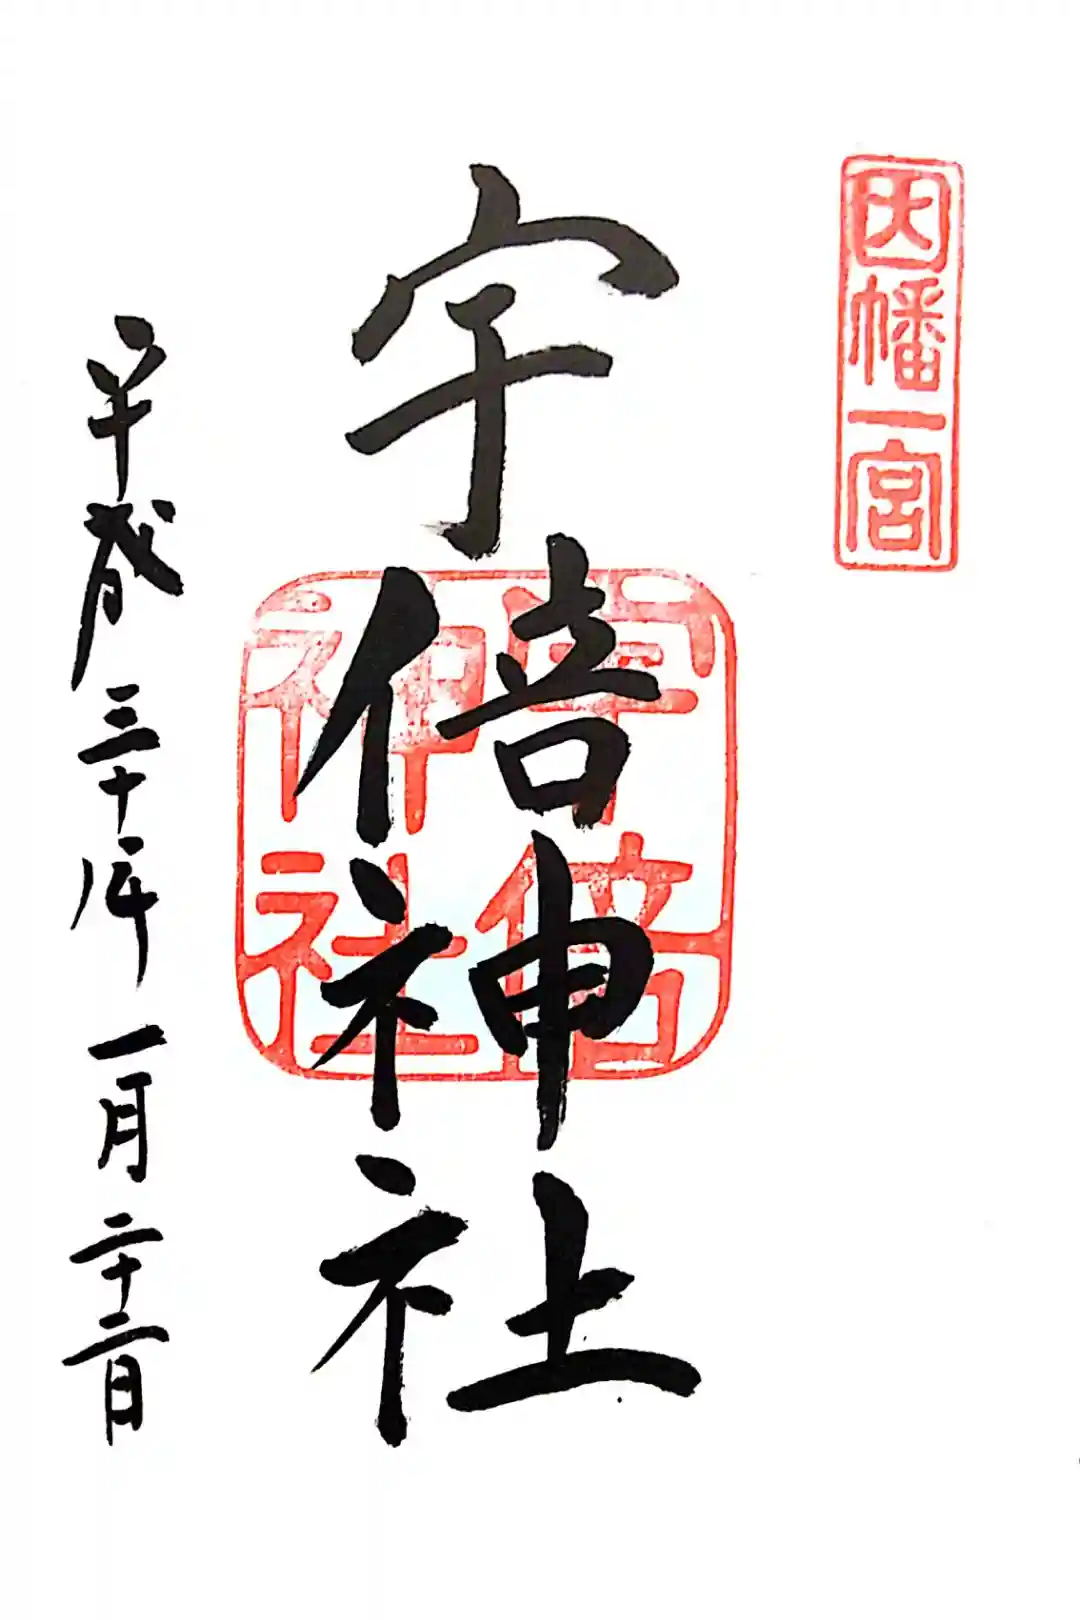 因幡一宮
宇倍神社
宇倍
神社
平成三十年一月二十二日